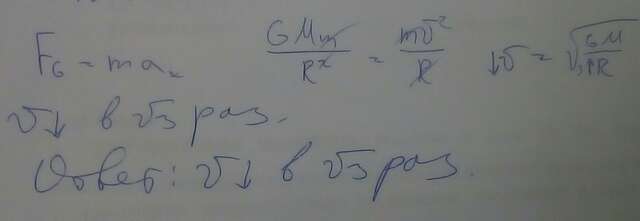 F_G = ma_x   GMm/R² = mv²/R   ↓v = √(GM/3↑R)
v↓ в √3 раз.
Ответ: v↓ в √3 раз.